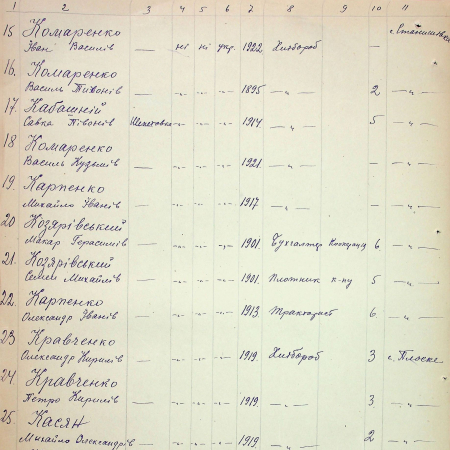 1 2 3 4 5 6 7 8 9 10 11
15 Комаренко
Івані Василів — ні ні укр. 1922 Хлібороб —
16. Комаренко
Василь Тихонів — -„- -„- -„- 1895 — „ — 2 — „ —
17. Кабашній
Савка Півонів -„- -„- -„- 1914. — „ — 5 — „ —
18 Комаренко
Василь Кузьмів — -„- -„- -„- 1921. — „ — — — „ —
19. Карпенко
Михайло Іванів — -„- -„- -„- 1917 — „ — — — „ —
20 Козярівський
Макар Герасимів — -„- -„- -„- 1901. Бухгалтер 6 — „ —
21. Козярівський
Семен Михайлів — -„- -„- -„- 1901. Плотник к-пу 5 — „ —
22. Карпенко
Олександр Іванів — -„- -„- -„- 1913. Тракторист 6 — „ —
23 Кравченко
Олександр Кирилів — -„- -„- -„- 1919. Хлібороб 3 с. Плоске
24. Кравченко
Петро Кирилів — -„- -„- -„- 1919. — „ — 3 — „ —
25. Касян
Михайло Олександрів — -„- -„- -„- 1919. — „ — 2 — „ —